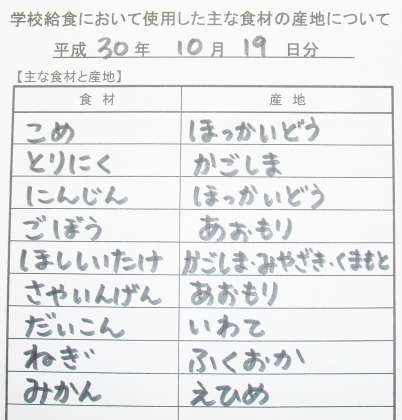 学校給食において使用した主な食材の産地について
平成 30 年 10 月 19 日分
【主な食材と産地】
食材 産地
こめ ほっかいどう
とりにく かごしま
にんじん ほっかいどう
ごぼう あおもり
ほししいたけ かごしま・みやざき・くまもと
さやいんげん あおもり
だいこん いわて
ねぎ ふくおか
みかん えひめ